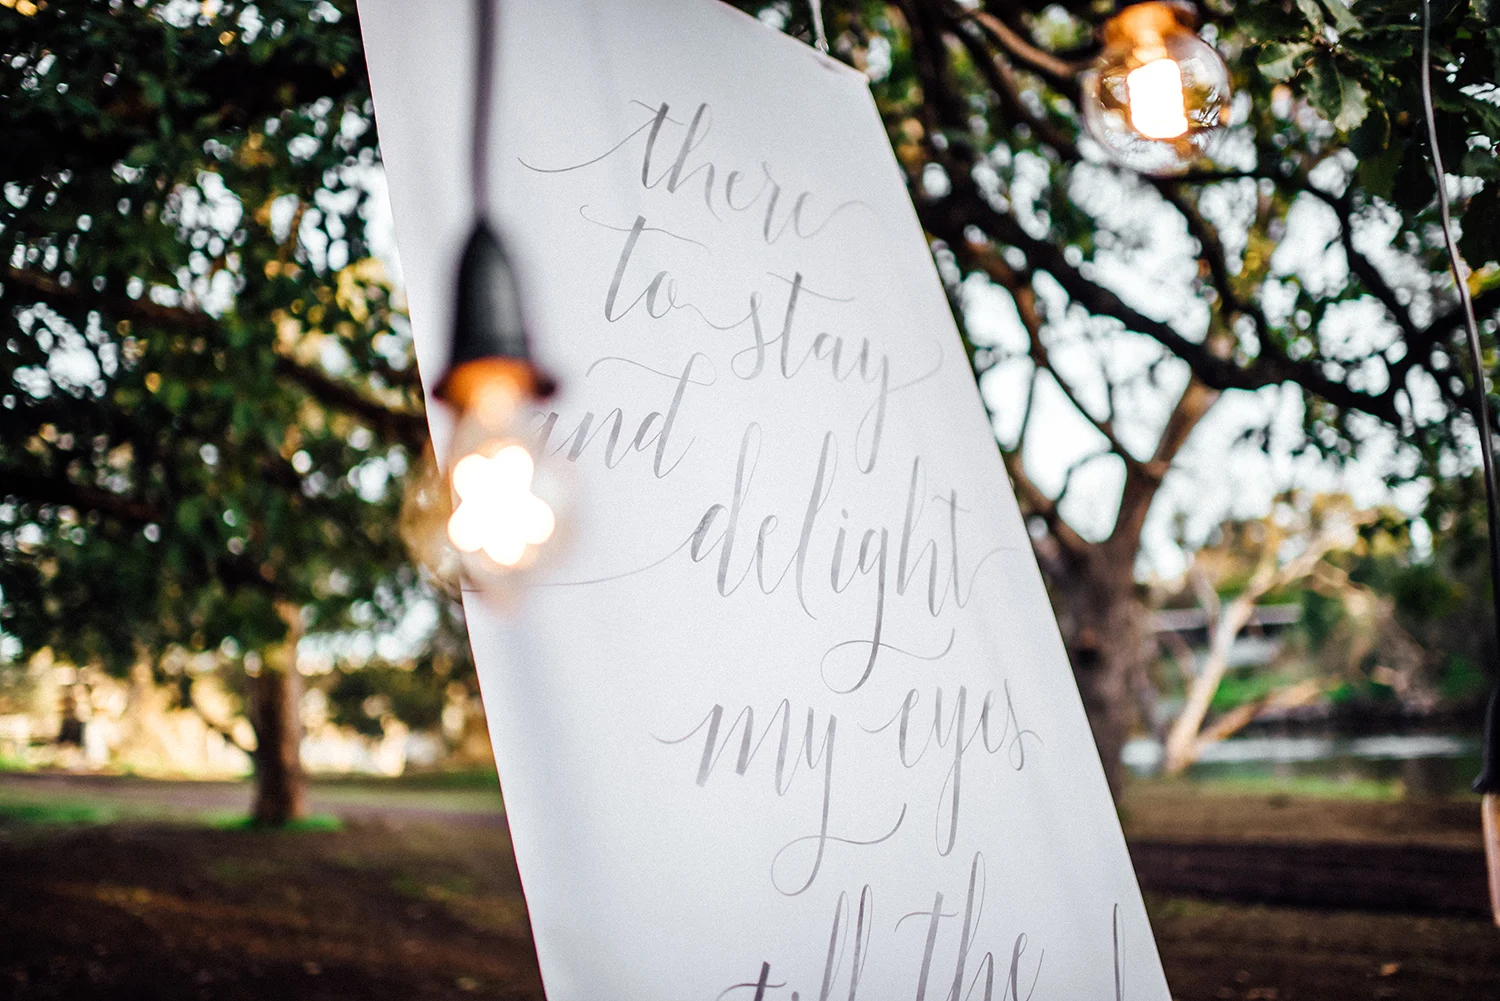 there
to stay
and
delight
my eyes
till the